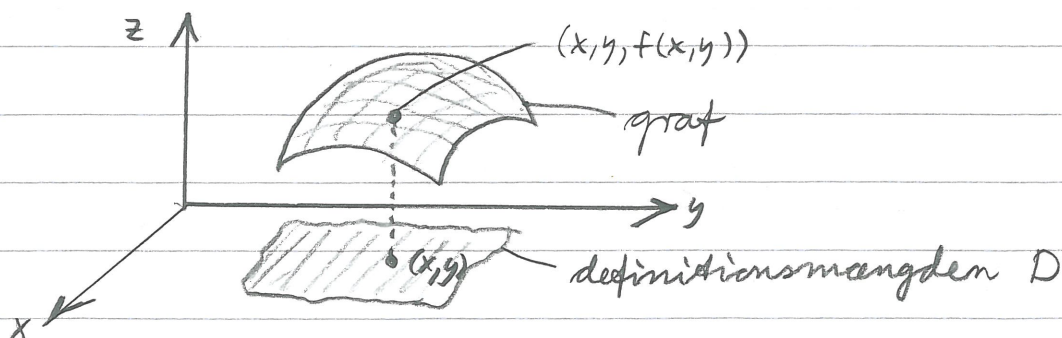 z
(x,y,f(x,y))
graf
y
(x,y)
definitionsmængden D
x